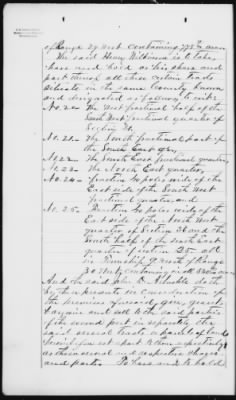 of Range 29 West containing 795 acres
The said Henry Wilkinson is to take,
have and hold as his share and
part thereof all those certain tracts
situate in the same County known
and designated as follows to wit:
No. 20 - The West fractional half of the
South West fractional quarter of
Section 31.
No. 21 - The South fractional part of
the South East qr.
No. 22 - The South East fractional quarter
No. 23 - The North East quarter,
No. 24 - Fraction poles wide of the
East side of the South West
fractional quarter, and
No. 25 - Fraction 60 poles wide of the
East side of the North West
quarter of Section 36 and the
South half of the North East
quarter of Section 25 all
in Township 9 North of Range
30 West, containing in all acres
And the said John D. doth
by these presents in consideration of
the premises aforesaid give, grant
bargain and sell to the said parties
of the second part in separate the
said several tracts & parcels of land
herein before set apart to them respectively
as their several and respective shares
and parts. To have and to hold